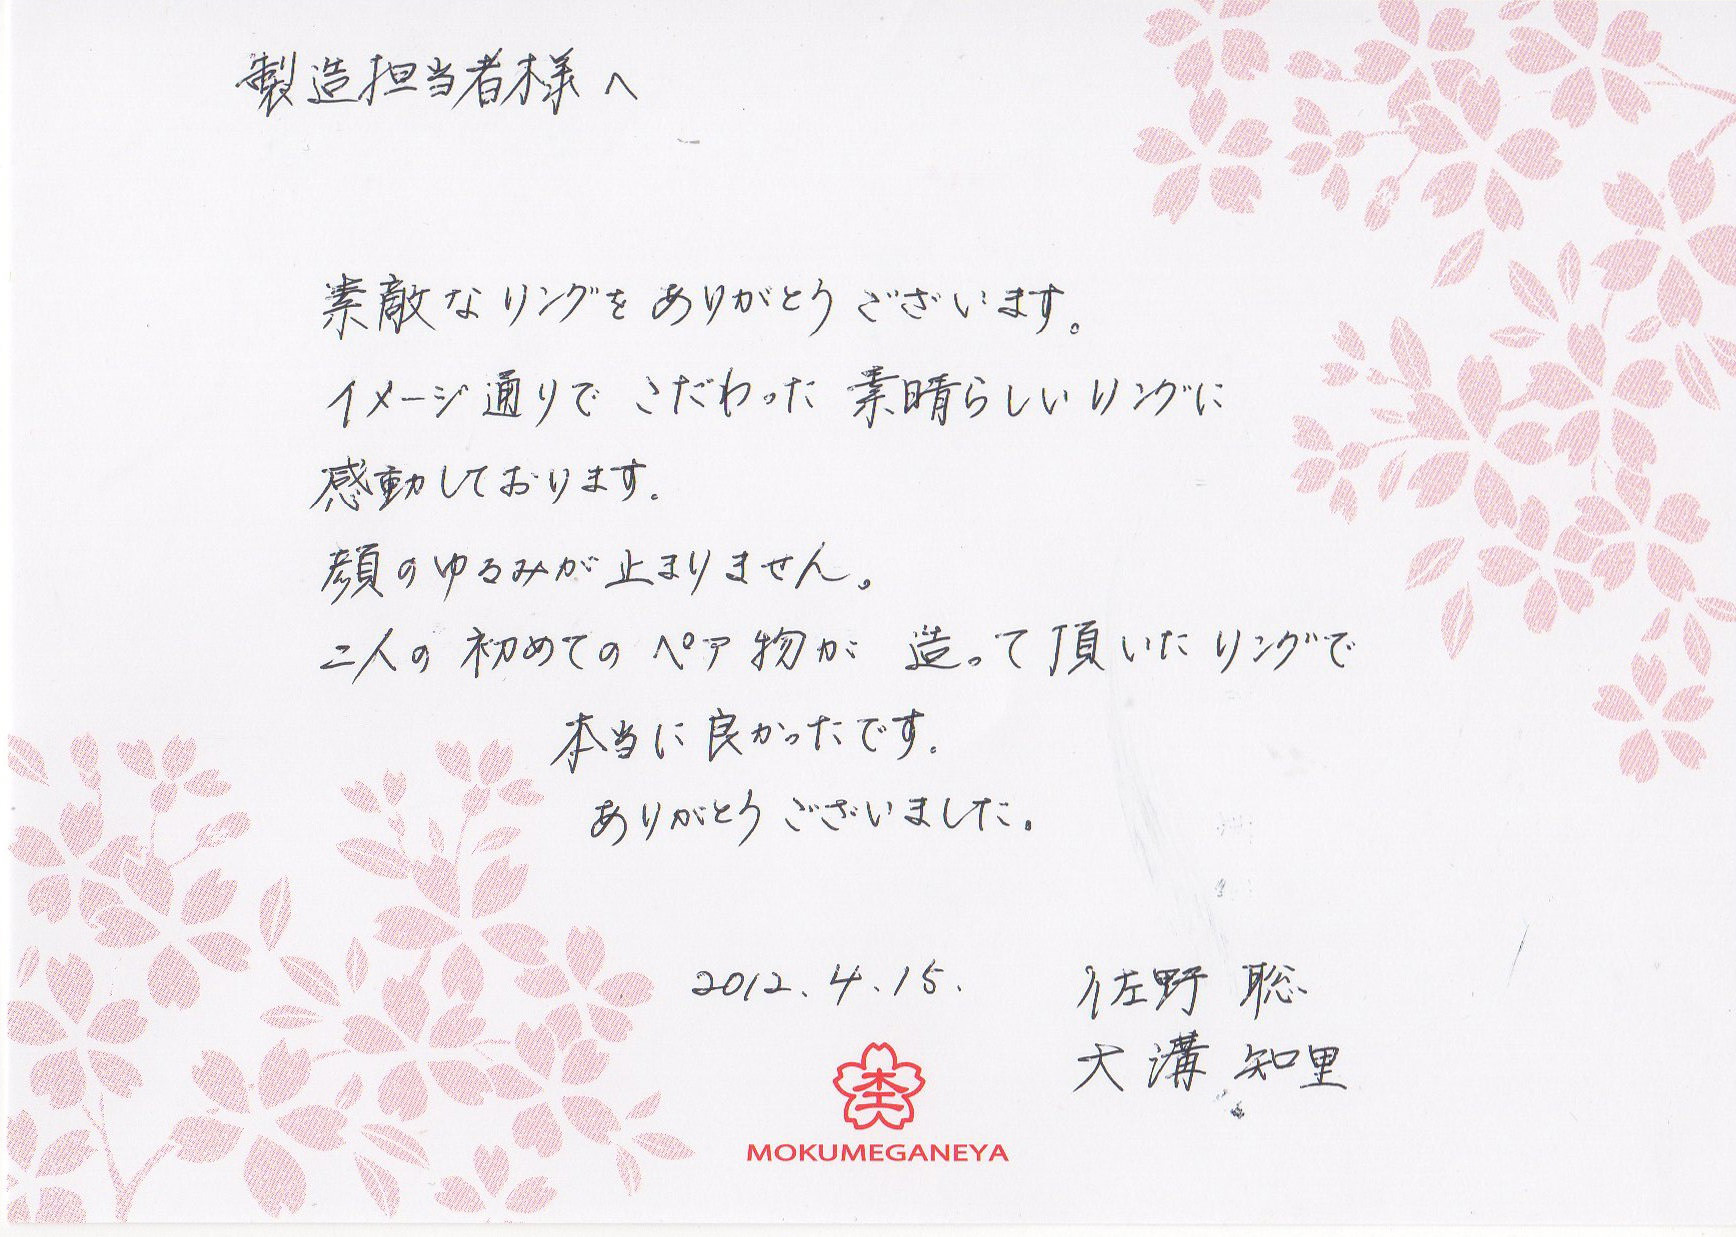 製造担当者様へ
素敵なリングをありがとうございます。
イメージ通りで こだわった 素晴らしいリングに
感動しております.
顔のゆるみが止まりません。
二人の初めてのペア物が 造って頂いたリングで
本当に良かったです.
ありがとうございました。
2012.4.15. 佐野 聡
大溝 知里
MOKUMEGANEYA